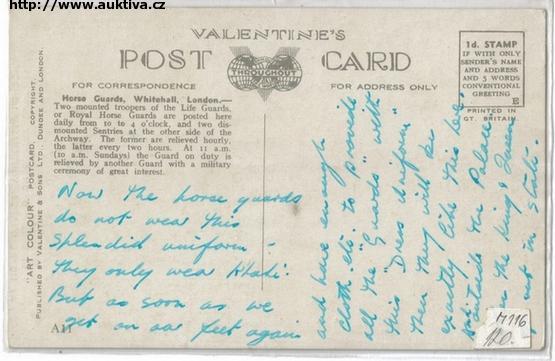 http://www.auktiva.cz
VALENTINE'S
POST CARD
THROUGHOUT
FOR CORRESPONDENCE
FOR ADDRESS ONLY
1d. STAMP
IF WITH ONLY
SENDER'S NAME
AND ADDRESS
AND 5 WORDS
CONVENTIONAL
GREETING
E
PRINTED IN
GT. BRITAIN
Horse Guards, Whitehall, London.—
Two mounted troopers of the Life Guards,
or Royal Horse Guards are posted here
daily from 10 to 4 o'clock, and two dis-
mounted Sentries at the other side of the
Archway. The former are relieved hourly,
the latter every two hours. At 11 a.m.
(10 a.m. Sundays) the Guard on duty is
relieved by another Guard with a military
ceremony of great interest.
"ART COLOUR" POSTCARD. COPYRIGHT.
PUBLISHED BY VALENTINE & SONS LTD., DUNDEE AND LONDON.
Now the horse guards
do not wear this
splendid uniform -
They only wear Khaki.
But as soon as we
get on our feet again
A11
and have enough
cloth etc. to provide
all the "Guards" with
this "Dress Uniform"
Then they will be
exactly like this here.
outside the Palace
the King & Queen
out in State.
M116
120.-